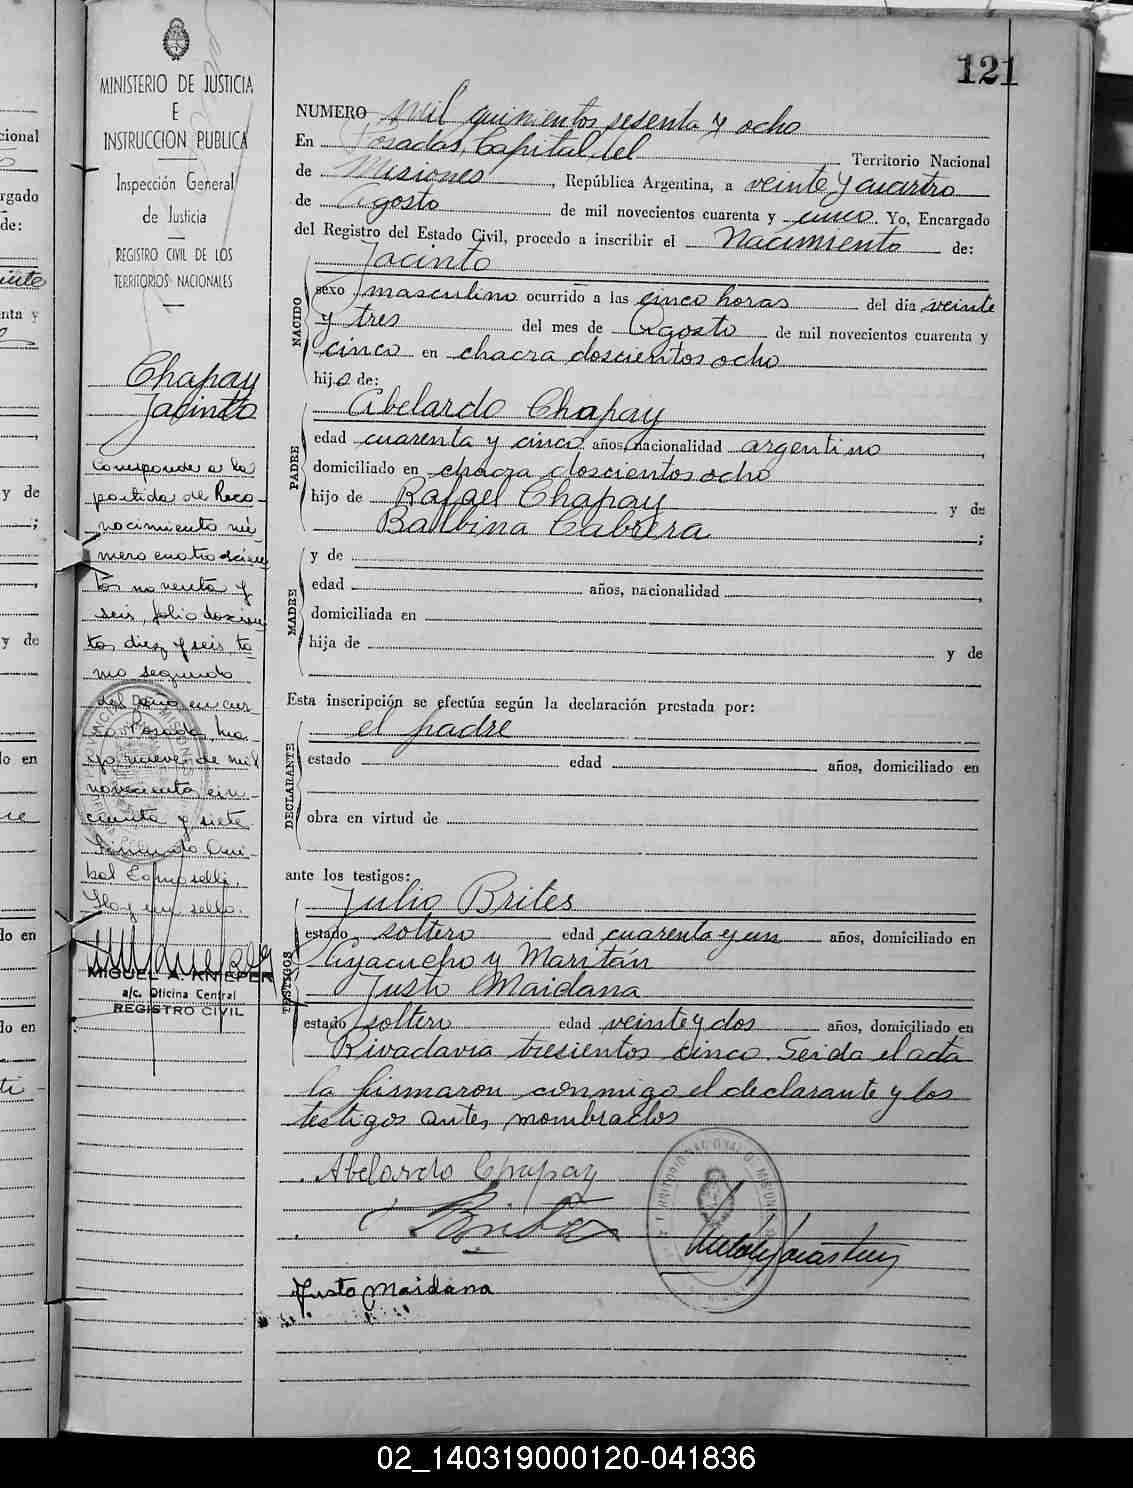 121
MINISTERIO DE JUSTICIA
E
INSTRUCCION PUBLICA
Inspección General
de Justicia
REGISTRO CIVIL DE LOS
TERRITORIOS NACIONALES
Chapay
Jacinto
Corresponde a la
partida de Reco-
nocimiento nú-
mero cuatrocien
tos noventa y
seis, folio doscien
tos diez y seis, to-
mo segundo
del año en cur-
so. Posadas, ma-
yo nueve de mil
novecientos cin-
cuenta y siete.
Hay un sello.
MIGUEL A. KNIEPER
a/c. Oficina Central
REGISTRO CIVIL
NUMERO mil quinientos sesenta y ocho
En Posadas, Capital del Territorio Nacional
de Misiones, República Argentina, a veinte y cuatro
de Agosto de mil novecientos cuarenta y cinco. Yo, Encargado
del Registro del Estado Civil, procedo a inscribir el Nacimiento de:
Jacinto
NACIDO
sexo masculino ocurrido a las cinco horas del día veinte
y tres del mes de Agosto de mil novecientos cuarenta y
cinco en chacra doscientos ocho
hijo de:
Abelardo Chapay
PADRE
edad cuarenta y cinco años, nacionalidad argentino
domiciliado en chacra doscientos ocho
hijo de Rafael Chapay y de
Balbina Cabrera;
MADRE
y de
edad años, nacionalidad
domiciliada en
hija de y de
Esta inscripción se efectúa según la declaración prestada por:
el padre
DECLARANTE
estado edad años, domiciliado en
obra en virtud de
ante los testigos:
Julio Brites
TESTIGOS
estado soltero edad cuarenta y un años, domiciliado en
Ayacucho y Maritán
Justo Maidana
estado soltero edad veinte y dos años, domiciliado en
Rivadavia tresientos cinco. Leida el acta
la firmaron conmigo el declarante y los
testigos antes nombrados
Abelardo Chapay
Brites
Justo Maidana
02_140319000120-041836